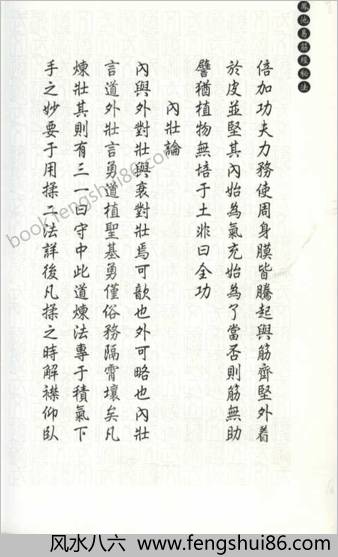 鳳池易筋經秘法
倍加功夫力務使周身膜皆騰起與筋齊堅外着
於皮並堅其內始為氣充始為了當否則筋無助
譬猶植物無培于土非曰全功
內壯論
內與外對壯與衰對壯焉可歆也外可略也內壯
言道外壯言勇道植聖基勇僅俗務隔霄壤矣凡
煉壯其則有三一曰守中此道煉法專于積氣下
手之妙要于用揉二法詳後凡揉之時解襟仰臥
book.fengshui86.com
风水八六 www.fengshui86.com